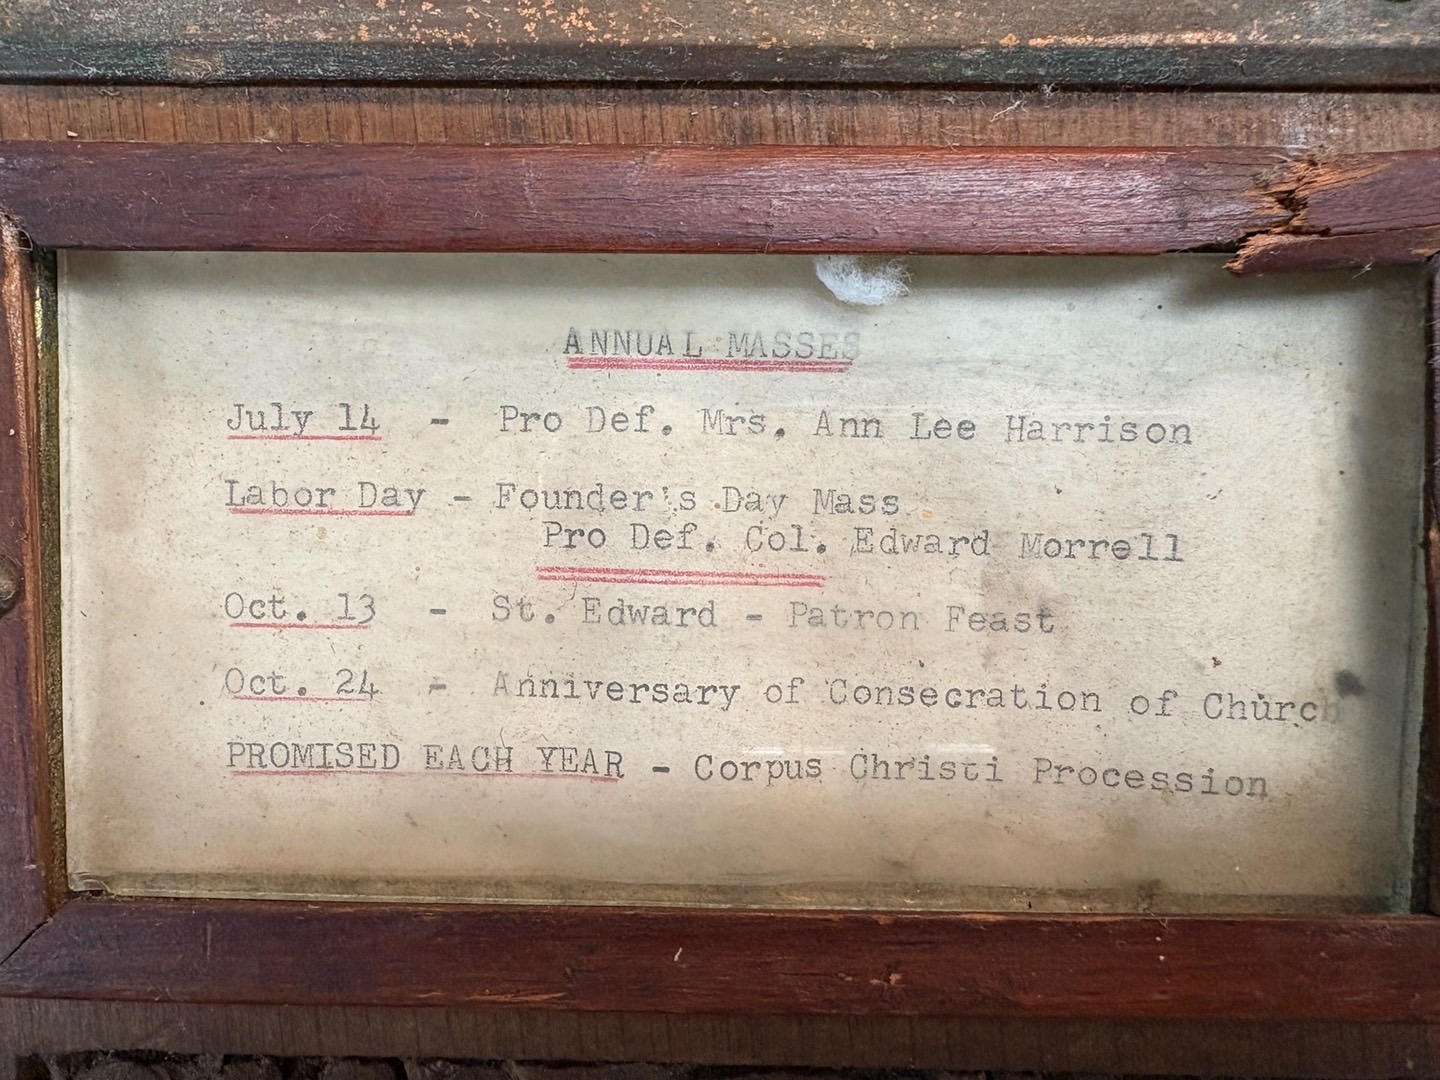 ANNUAL MASSES
July 14 - Pro Def. Mrs. Ann Lee Harrison
Labor Day - Founder's Day Mass
Pro Def. Col. Edward Morrell
Oct. 13 - St. Edward - Patron Feast
Oct. 24 - Anniversary of Consecration of Church
PROMISED EACH YEAR - Corpus Christi Procession